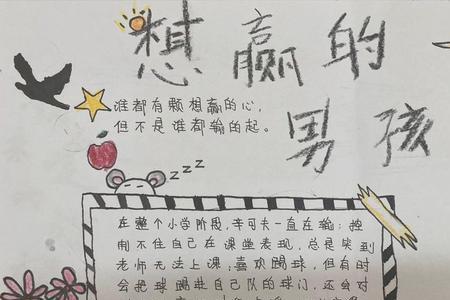 想赢的
男孩
谁都有颗想赢的心，
但不是谁都输的起。
zzz
在整个小学阶段，辛可夫一直在输：控
制不住自己在课堂表现，总是笑到
老师无法上课；喜欢踢球，但有时
会把球踢进自己队的球门，还会对